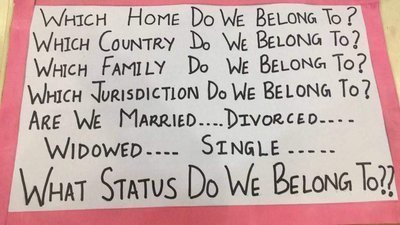 WHICH HOME DO WE BELONG TO?
WHICH COUNTRY DO WE BELONG TO?
WHICH FAMILY DO WE BELONG TO?
WHICH JURISDICTION DO WE BELONG TO?
ARE WE MARRIED....DIVORCED....
WIDOWED.... SINGLE .....
WHAT STATUS DO WE BELONG TO??